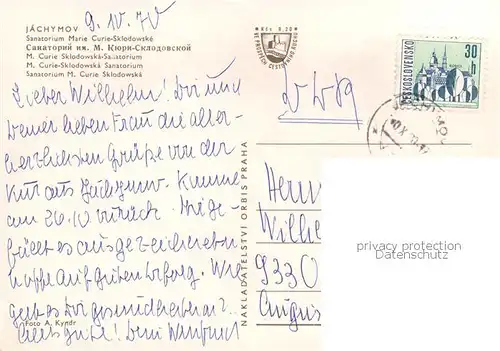 9. IV. 70
JÁCHYMOV
Sanatorium Marie Curie-Sklodowské
Санаторий им. М. Кюри-Склодовской
M. Curie Sklodowská-Sanatorium
M. Curie Sklodowská-Sanatorium
Sanatorium M. Curie Sklodowská
Kčs 0,20
VE PROSPĚCH CESTOVNÍHO RUCHU
ČESKOSLOVENSKO
30 h
Lieber Wilhelm! Dir und
Deiner lieben Frau die aller-
herzlichsten Grüße von der
Kur aus Jáchymov. Komme
am 26.10 zurück. Mir ge-
fällt es ausgezeichnet u.
hoffe auf guten Erfolg. Wie
geht es Dir gesundheitlich?
Alles Gute! Dein Manfred
NAKLADATELSTVÍ ORBIS PRAHA
Herrn
Wilhe
9330
Augus
privacy protection
Datenschutz
Foto A. Kyndr